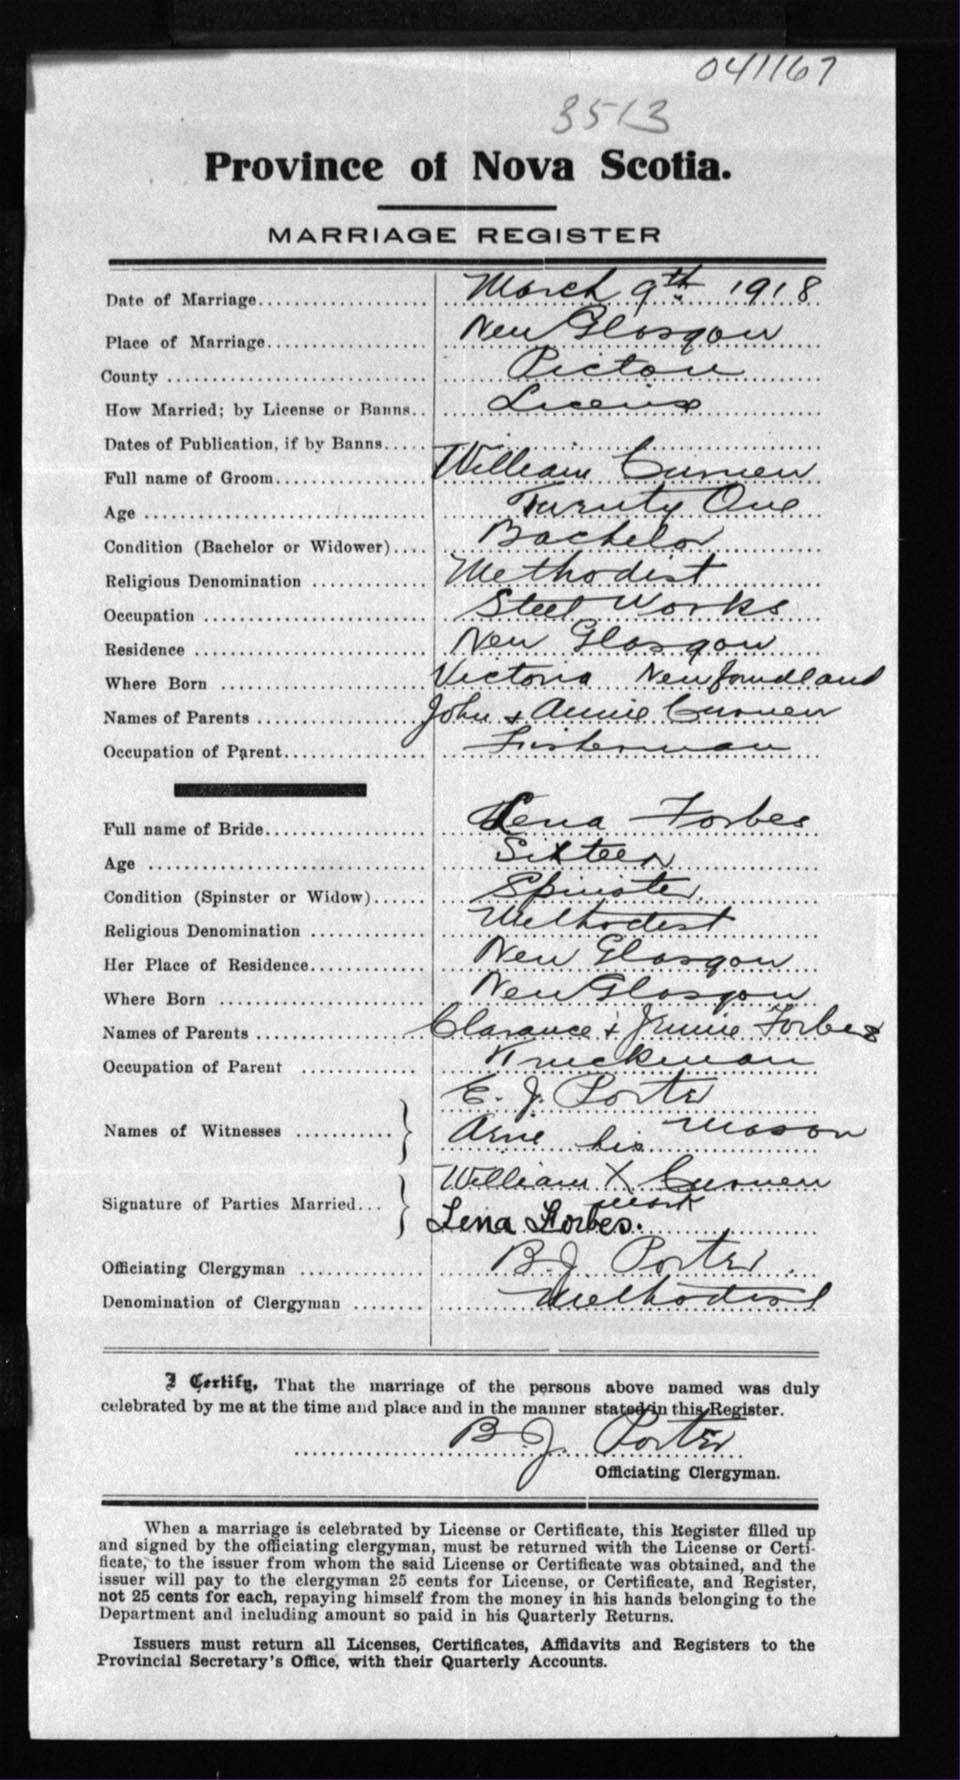 041167
3513
Province of Nova Scotia.
MARRIAGE REGISTER
Date of Marriage March 9th 1918
Place of Marriage New Glasgow
County Pictou
How Married; by License or Banns License
Dates of Publication, if by Banns
Full name of Groom William Curnen
Age Twenty One
Condition (Bachelor or Widower) Bachelor
Religious Denomination Methodist
Occupation Steel Works
Residence New Glasgow
Where Born Victoria Newfoundland
Names of Parents John & Annie Curnen
Occupation of Parent Fisherman
Full name of Bride Lena Forbes
Age Sixteen
Condition (Spinster or Widow) Spinster
Religious Denomination Methodist
Her Place of Residence New Glasgow
Where Born New Glasgow
Names of Parents Clarance & Jennie Forbes
Occupation of Parent Truckman
E. J. Porter
Names of Witnesses Mason
his
Signature of Parties Married William X Curnen
mark
Lena Forbes.
Officiating Clergyman B. J. Porter
Denomination of Clergyman Methodist
I Certify, That the marriage of the persons above named was duly
celebrated by me at the time and place and in the manner stated in this Register.
B. J. Porter
Officiating Clergyman.
When a marriage is celebrated by License or Certificate, this Register filled up
and signed by the officiating clergyman, must be returned with the License or Certi-
ficate, to the issuer from whom the said License or Certificate was obtained, and the
issuer will pay to the clergyman 25 cents for License, or Certificate, and Register,
not 25 cents for each, repaying himself from the money in his hands belonging to the
Department and including amount so paid in his Quarterly Returns.
Issuers must return all Licenses, Certificates, Affidavits and Registers to the
Provincial Secretary's Office, with their Quarterly Accounts.